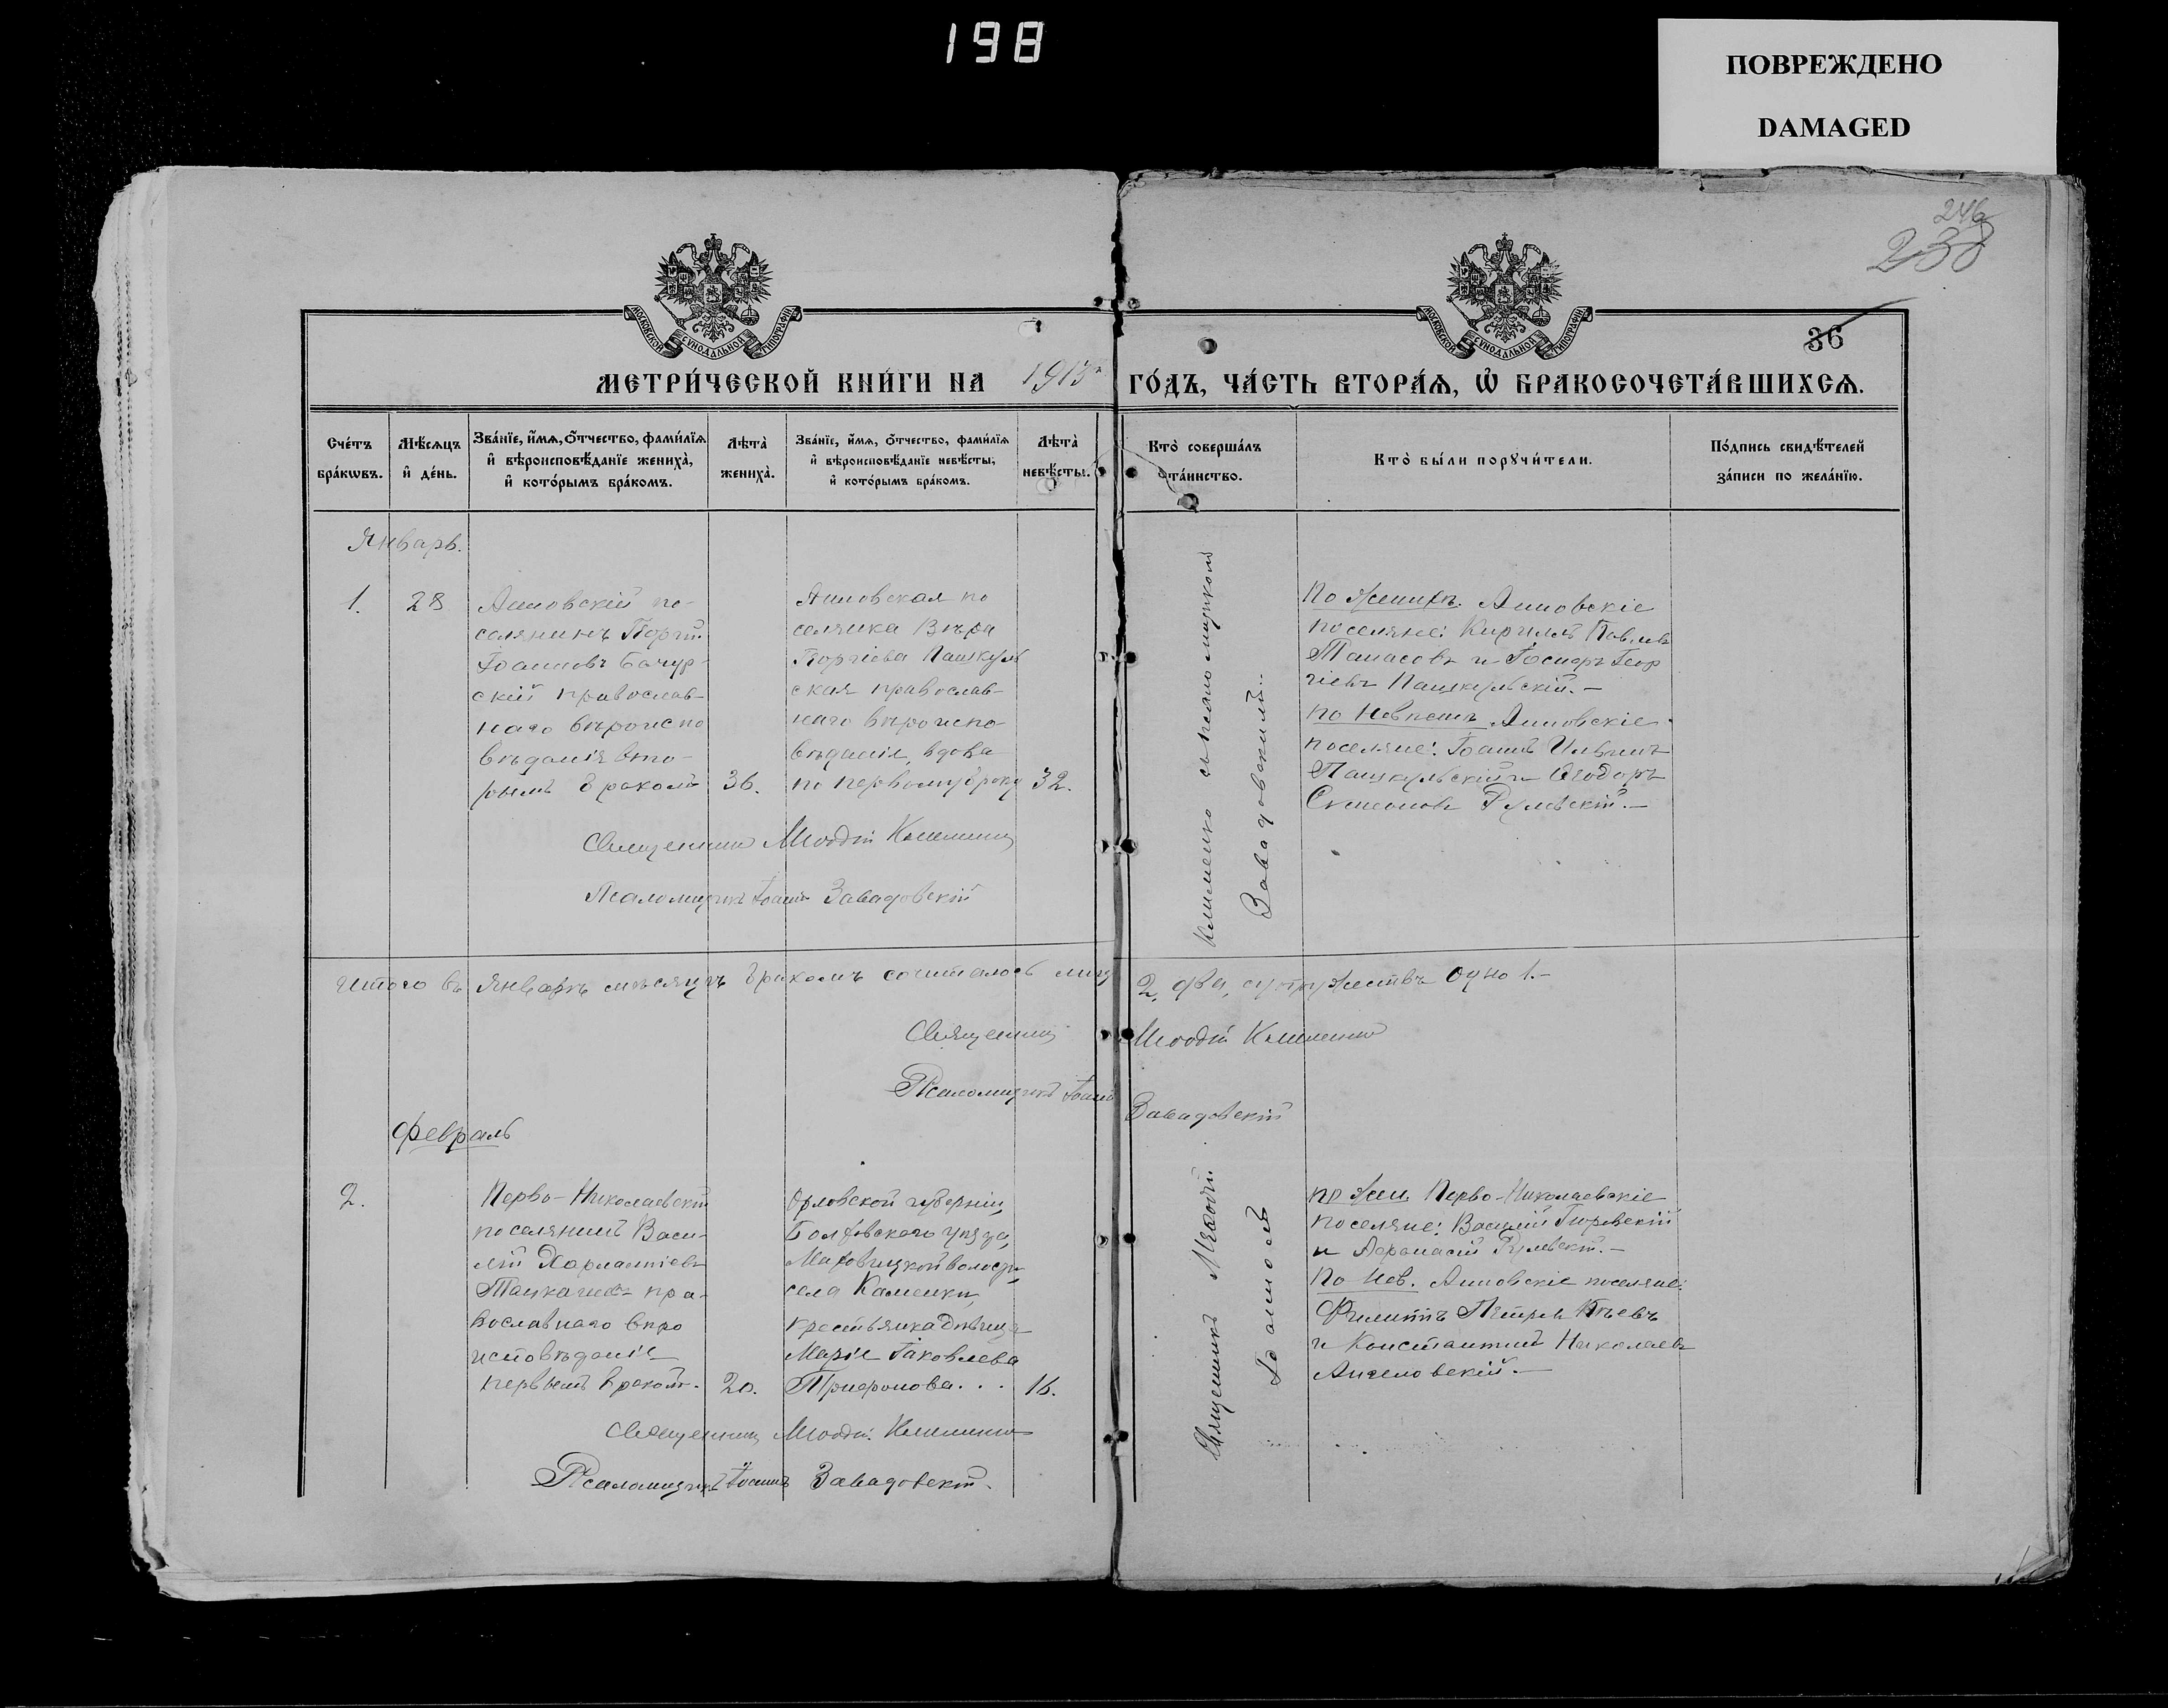 198
ПОВРЕЖДЕНО
DAMAGED
246
238
36
МОСКОВСКОЙ СѴНОДАЛЬНОЙ ТИПОГРАФІИ
МОСКОВСКОЙ СѴНОДАЛЬНОЙ ТИПОГРАФІИ
МЕТРИ́ЧЕСКОЙ КНИ́ГИ НА 1913 ГО́ДЪ, ЧА́СТЬ ВТОРА́Ѧ, Ѡ҆ БРАКОСОЧЕТА́ВШИХСѦ.
Сче́тъ бра́кѡвъ.
Мѣ́сѧцъ и҆ де́нь.
Зва́нїе, и҆́мѧ, ѻ҆́тчество, фами́лїѧ
и҆ вѣроисповѣ́данїе жениха̀,
и҆ кото́рымъ бра́комъ.
Лѣта̀ жениха̀.
Зва́нїе, и҆́мѧ, ѻ҆́тчество, фами́лїѧ
и҆ вѣроисповѣ́данїе невѣ́сты,
и҆ кото́рымъ бра́комъ.
Лѣта̀ невѣ́сты.
Кто̀ соверша́лъ
та́инство.
Кто̀ бы́ли порꙋчи́тели.
По́дпись свидѣ́телей
за́писи по жела́нїю.
Январь.
1.
28
поселянинъ Георгій
Іоанновъ Бачур-
скій православ-
наго вѣроиспо
вѣданія вто-
рымъ бракомъ
36.
по
селянка Вѣра
Георгіева Пашкуль
ская православ-
наго вѣроиспо-
вѣданія, вдова
по первому браку
32.
Клименко съ псаломщикомъ
Завадовскимъ.
По женихѣ.
поселяне: Кириллъ Павловъ
Танасовъ и Геор
гіевъ Пашкульскій.-
по невѣстѣ
поселяне: Іоаннъ Ильинъ
Пашкульскій и Ѳеодоръ
Симеоновъ Рулевскій.-
Священникъ Меѳодій Клименко
Псаломщикъ Іоаннъ Завадовскій
Итого въ Январѣ мѣсяцѣ бракомъ сочиталось лицъ 2, два, супружествъ одно 1.-
Священникъ Меѳодій Клименко
Псаломщикъ Іоаннъ Завадовскій
Февраль
2.
Перво-Николаевскій
поселянинъ Васи-
лій Харлампіевъ
пра-
вославнаго вѣро
исповѣданія
первымъ бракомъ.
20.
Орловской губерніи,
Болховского уѣзда,
волости
села Каменки,
крестьянка дѣвица
Марія Іаковлева
Трифонова...
16.
Священникъ Меѳодій
Іоанномъ
по жен. Перво-Николаевскіе
поселяне: Василій Гюревскій
и Аѳанасій Рулевскій.-
По Нев. поселяне:
Филиппъ Петровъ
и Константинъ Николаевъ
Ангеловскій.-
Священникъ Меѳодій Клименко
Псаломщикъ Іоаннъ Завадовскій.